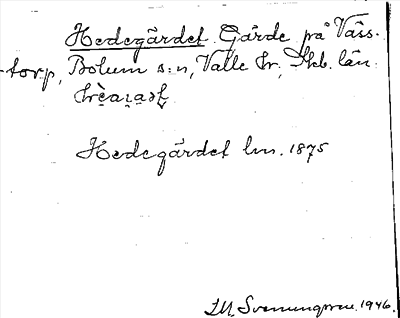 Hedegärdet. Gärde på Väss-
torp, Bolum s:n, Valle hr, Skb. län.
Hedegärdet lm. 1875
I.M. Svenungsson. 1946.